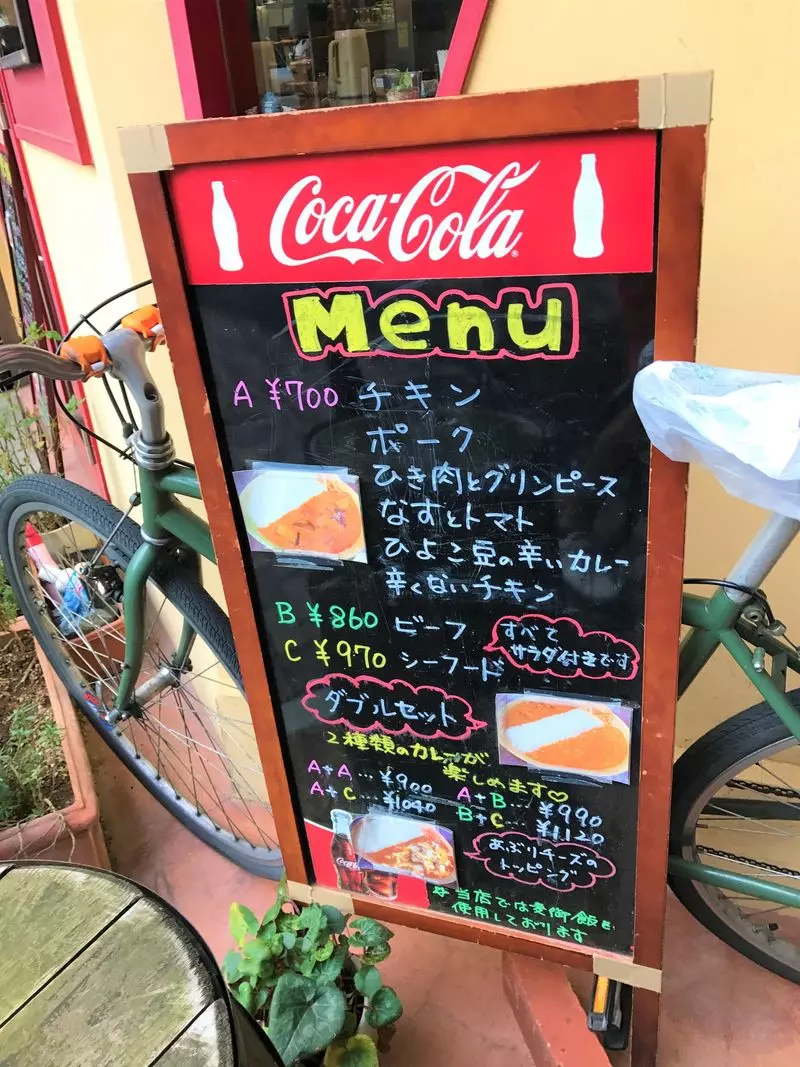 Coca-Cola
Menu
A ¥700 チキン
ポーク
ひき肉とグリンピース
なすとトマト
ひよこ豆の辛いカレー
辛くないチキン
B ¥860 ビーフ
C ¥970 シーフード
すべて
サラダ付きです
ダブルセット
2種類のカレーが
楽しめます♡
A+A…¥900
A+B…¥990
A+C…¥1040
B+C…¥1120
あぶりチーズの
トッピング
当店では麦御飯を
使用しております